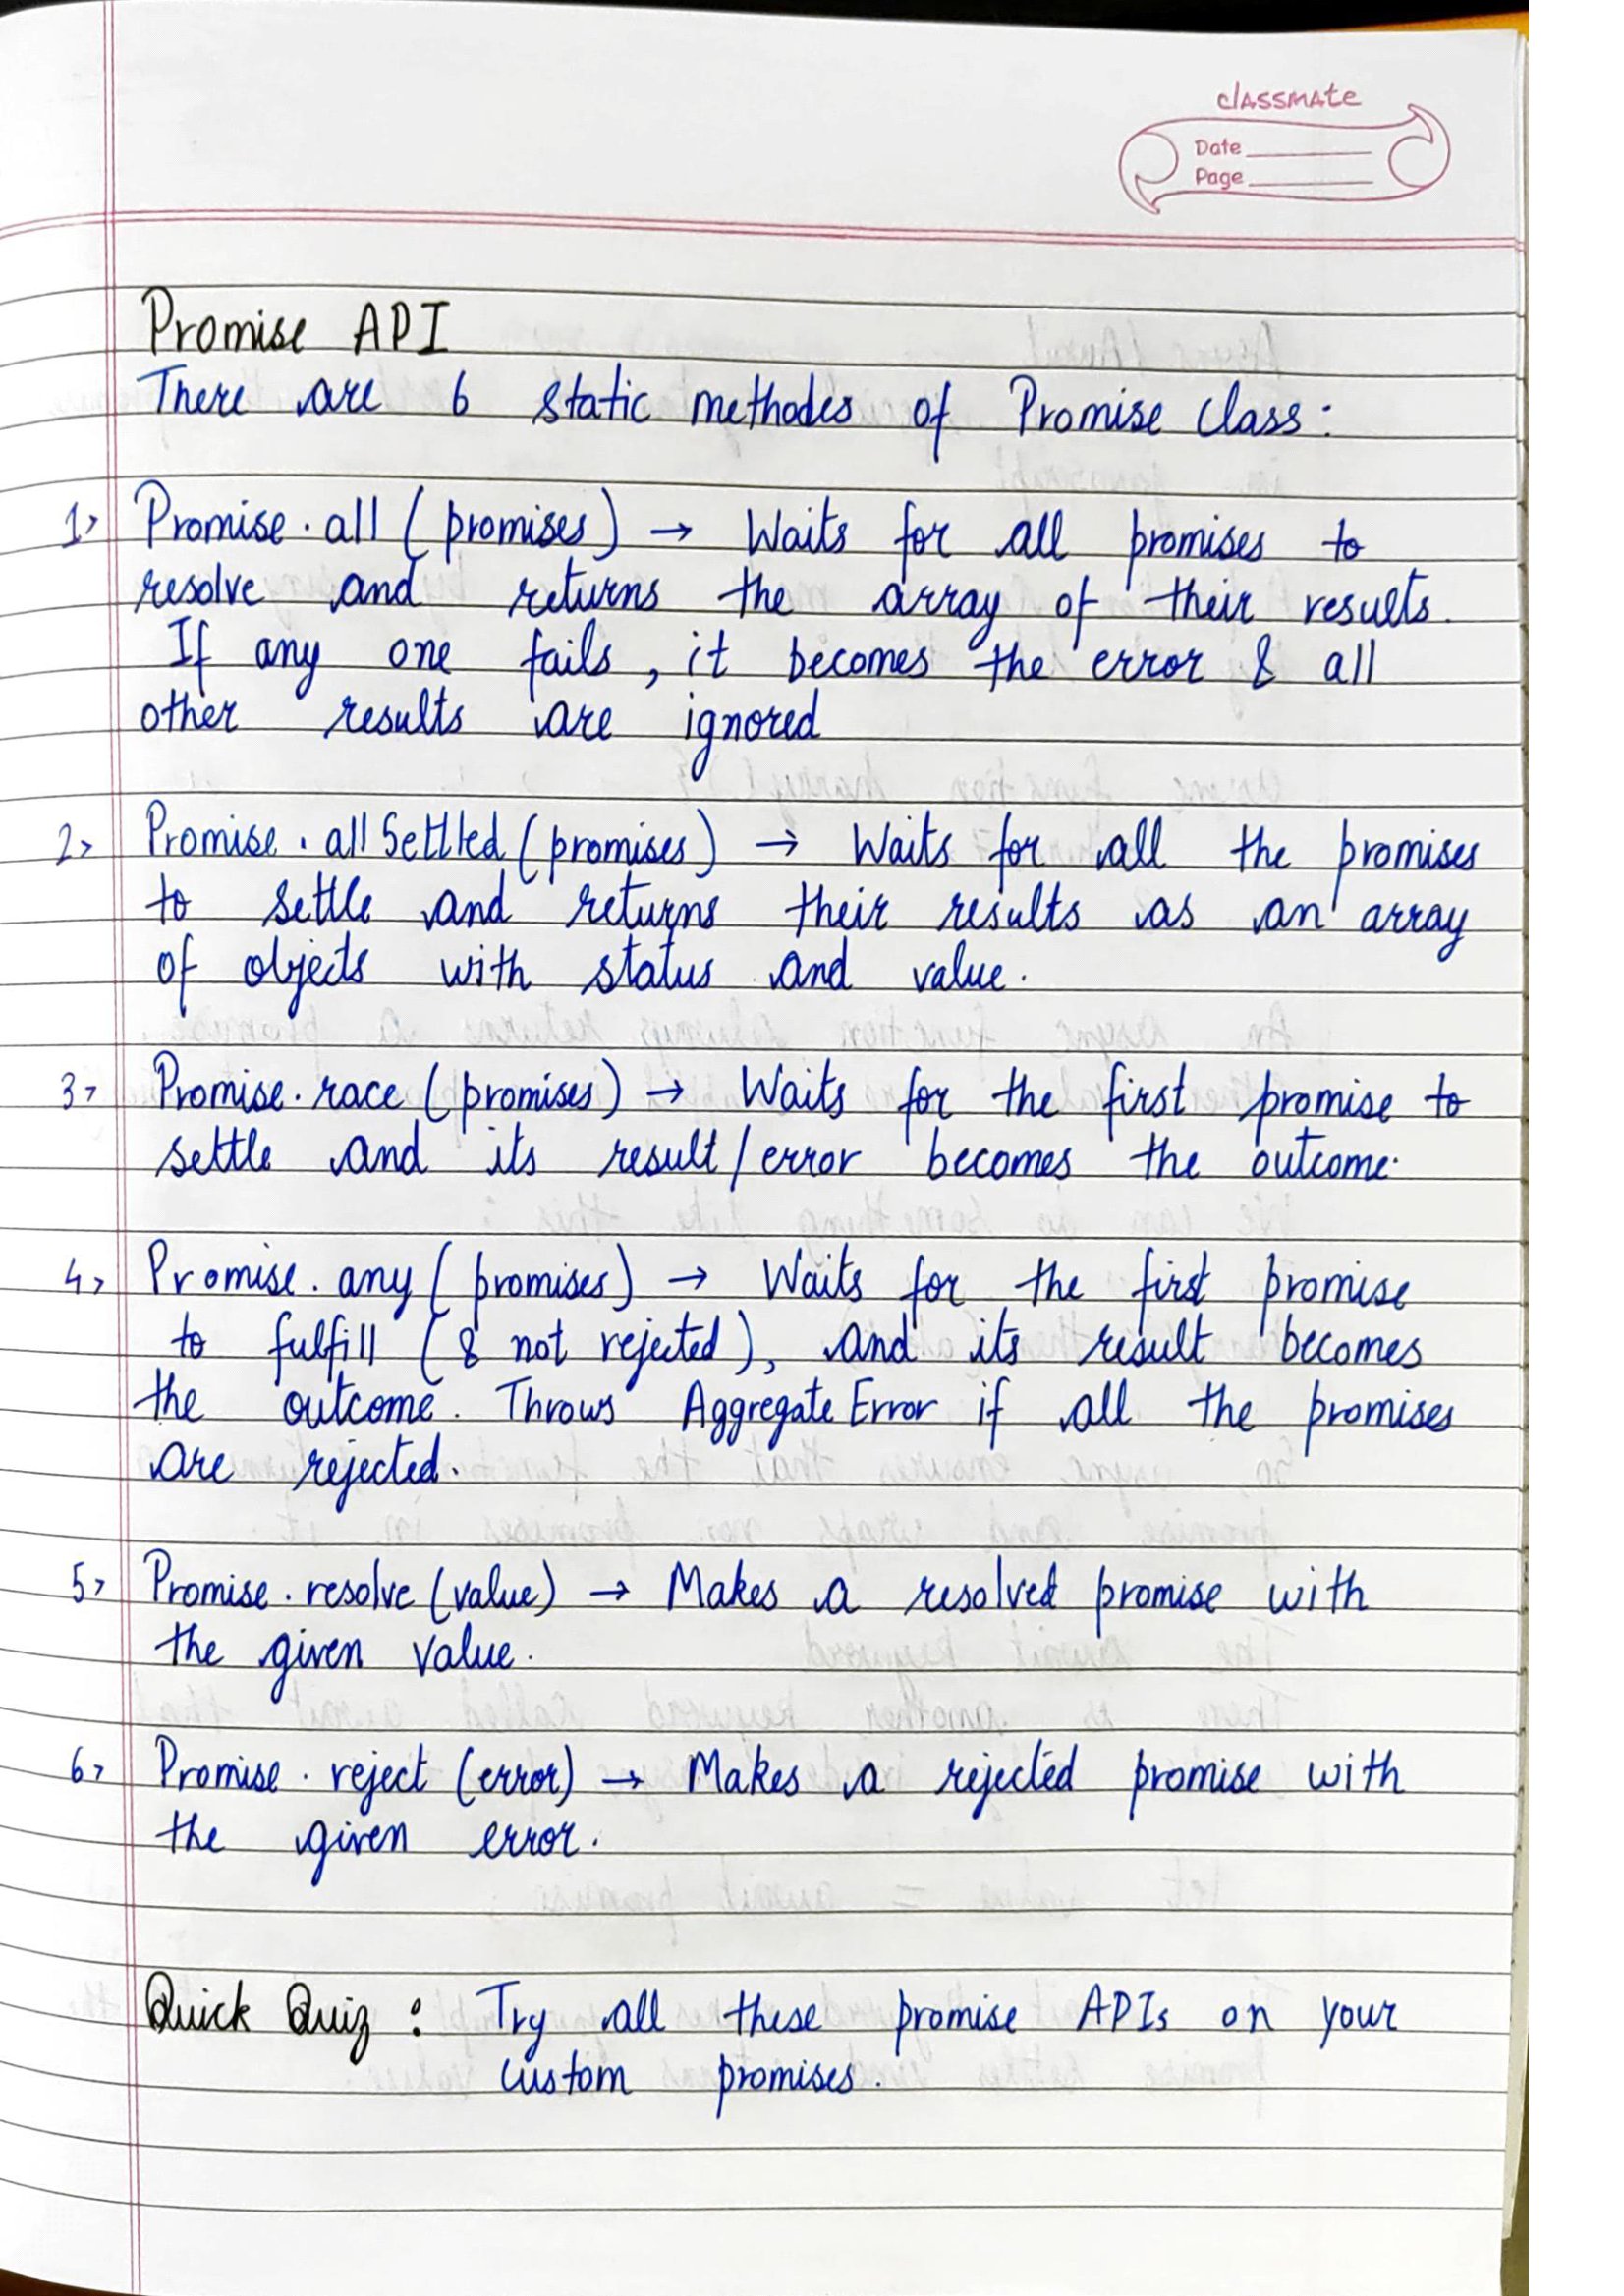 classmate
Date
Page
Promise API
There are 6 static methodes of Promise class:
1> Promise.all (promises) → Waits for all promises to
resolve and returns the array of their results.
If any one fails, it becomes the error & all
other results are ignored
2> Promise.allSettled (promises) → Waits for all the promises
to settle and returns their results as an array
of objects with status and value.
3> Promise.race (promises) → Waits for the first promise to
settle and its result/error becomes the outcome.
4> Promise.any (promises) → Waits for the first promise
to fulfill (& not rejected), and its result becomes
the outcome. Throws Aggregate Error if all the promises
are rejected.
5> Promise.resolve (value) → Makes a resolved promise with
the given value.
6> Promise.reject (error) → Makes a rejected promise with
the given error.
Quick Quiz : Try all these promise APIs on your
custom promises.